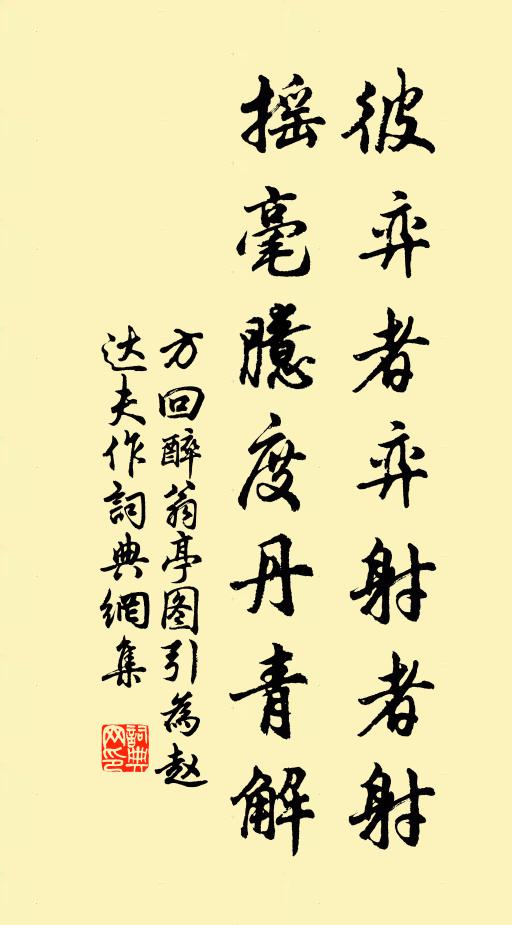 彼弈者弈射者射
摇毫臆度丹青解
方回醉翁亭图引為赵
达夫作詞典網集
詞典网印